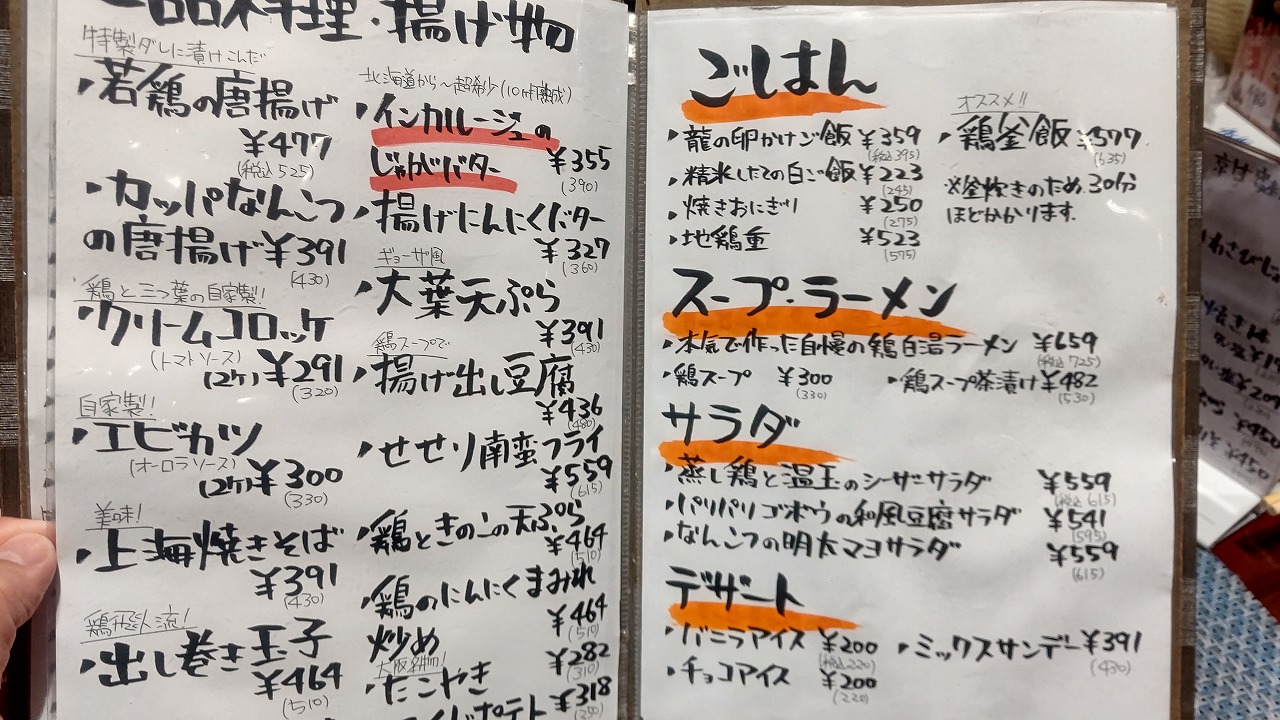 一品料理・揚げ物
特製ダレに漬けこんだ
・若鶏の唐揚げ
¥477
(税込525)
・カッパなんこつ
の唐揚げ¥391
(430)
鶏と三つ葉の自家製!
・クリームコロッケ
(トマトソース)
(2ケ)¥291
(320)
自家製!
・エビカツ
(オーロラソース)
(2ケ)¥300
(330)
美味!
・上海焼きそば
¥391
(430)
・出し巻き玉子
¥464
(510)
・インカルージュの
じゃがバター ¥355
(390)
・揚げにんにくバター
¥327
(360)
ギョーザ風
・大葉天ぷら
¥391
(430)
鶏スープで
・揚げ出し豆腐
¥436
(480)
・せせり南蛮フライ
¥559
(615)
・鶏ときのこの天ぷら
¥464
(510)
・鶏のにんにくまみれ
炒め
¥464
(510)
・たこやき
¥282
(310)
ポテト
¥318
(350)
ごはん
・龍の卵かけご飯 ¥359
(税込395)
・精米したての白ご飯¥223
(245)
・焼きおにぎり ¥250
(275)
・地鶏重 ¥523
(575)
オススメ!!
・鶏釜飯 ¥577
(635)
※釜炊きのため30分
ほどかかります.
スープ・ラーメン
・本気で作った自慢の鶏白湯ラーメン ¥659
(税込725)
・鶏スープ ¥300
(330)
・鶏スープ茶漬け¥482
(530)
サラダ
・蒸し鶏と温玉のシーザーサラダ ¥559
(税込615)
・パリパリゴボウの和風豆腐サラダ ¥541
(595)
・なんこつの明太マヨサラダ ¥559
(615)
デザート
・バニラアイス ¥200
(税込220)
・チョコアイス ¥200
(220)
・ミックスサンデー¥391
(430)